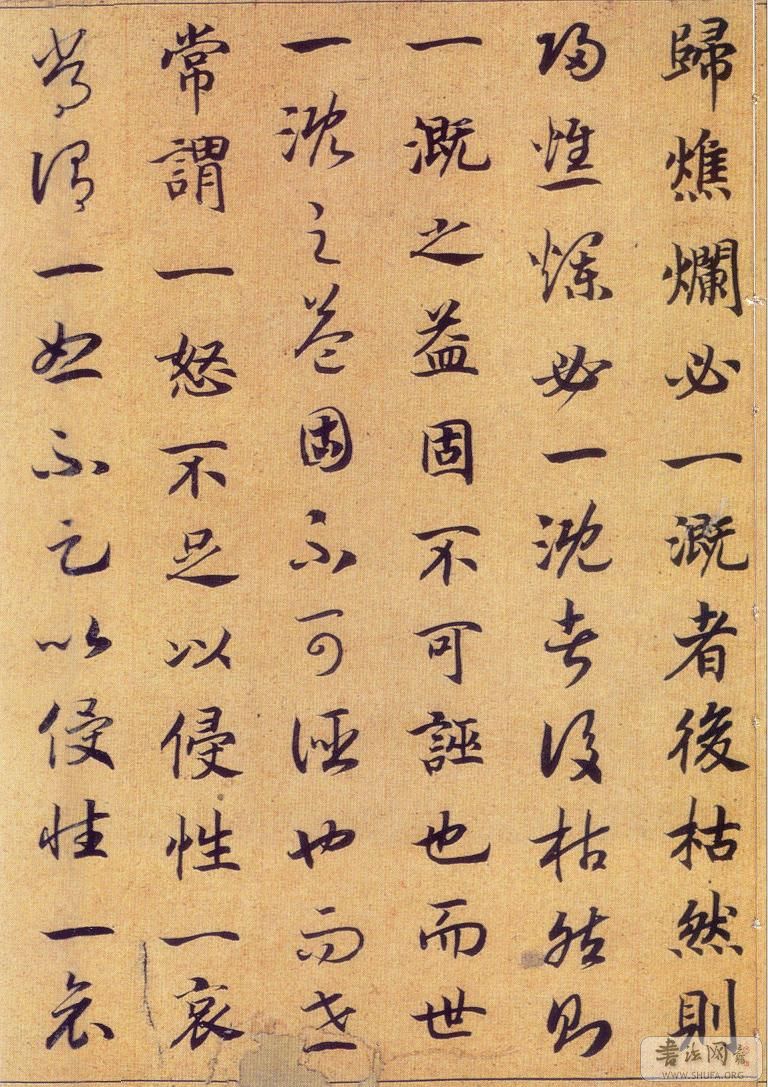 歸燋爛必一溉者後枯然則
歸燋爛必一溉者後枯然則
一溉之益固不可誣也而世
一溉之益固不可誣也而世
常謂一怒不足以侵性一哀
常謂一怒不足以侵性一哀
书法网
WWW.SHUFA.ORG